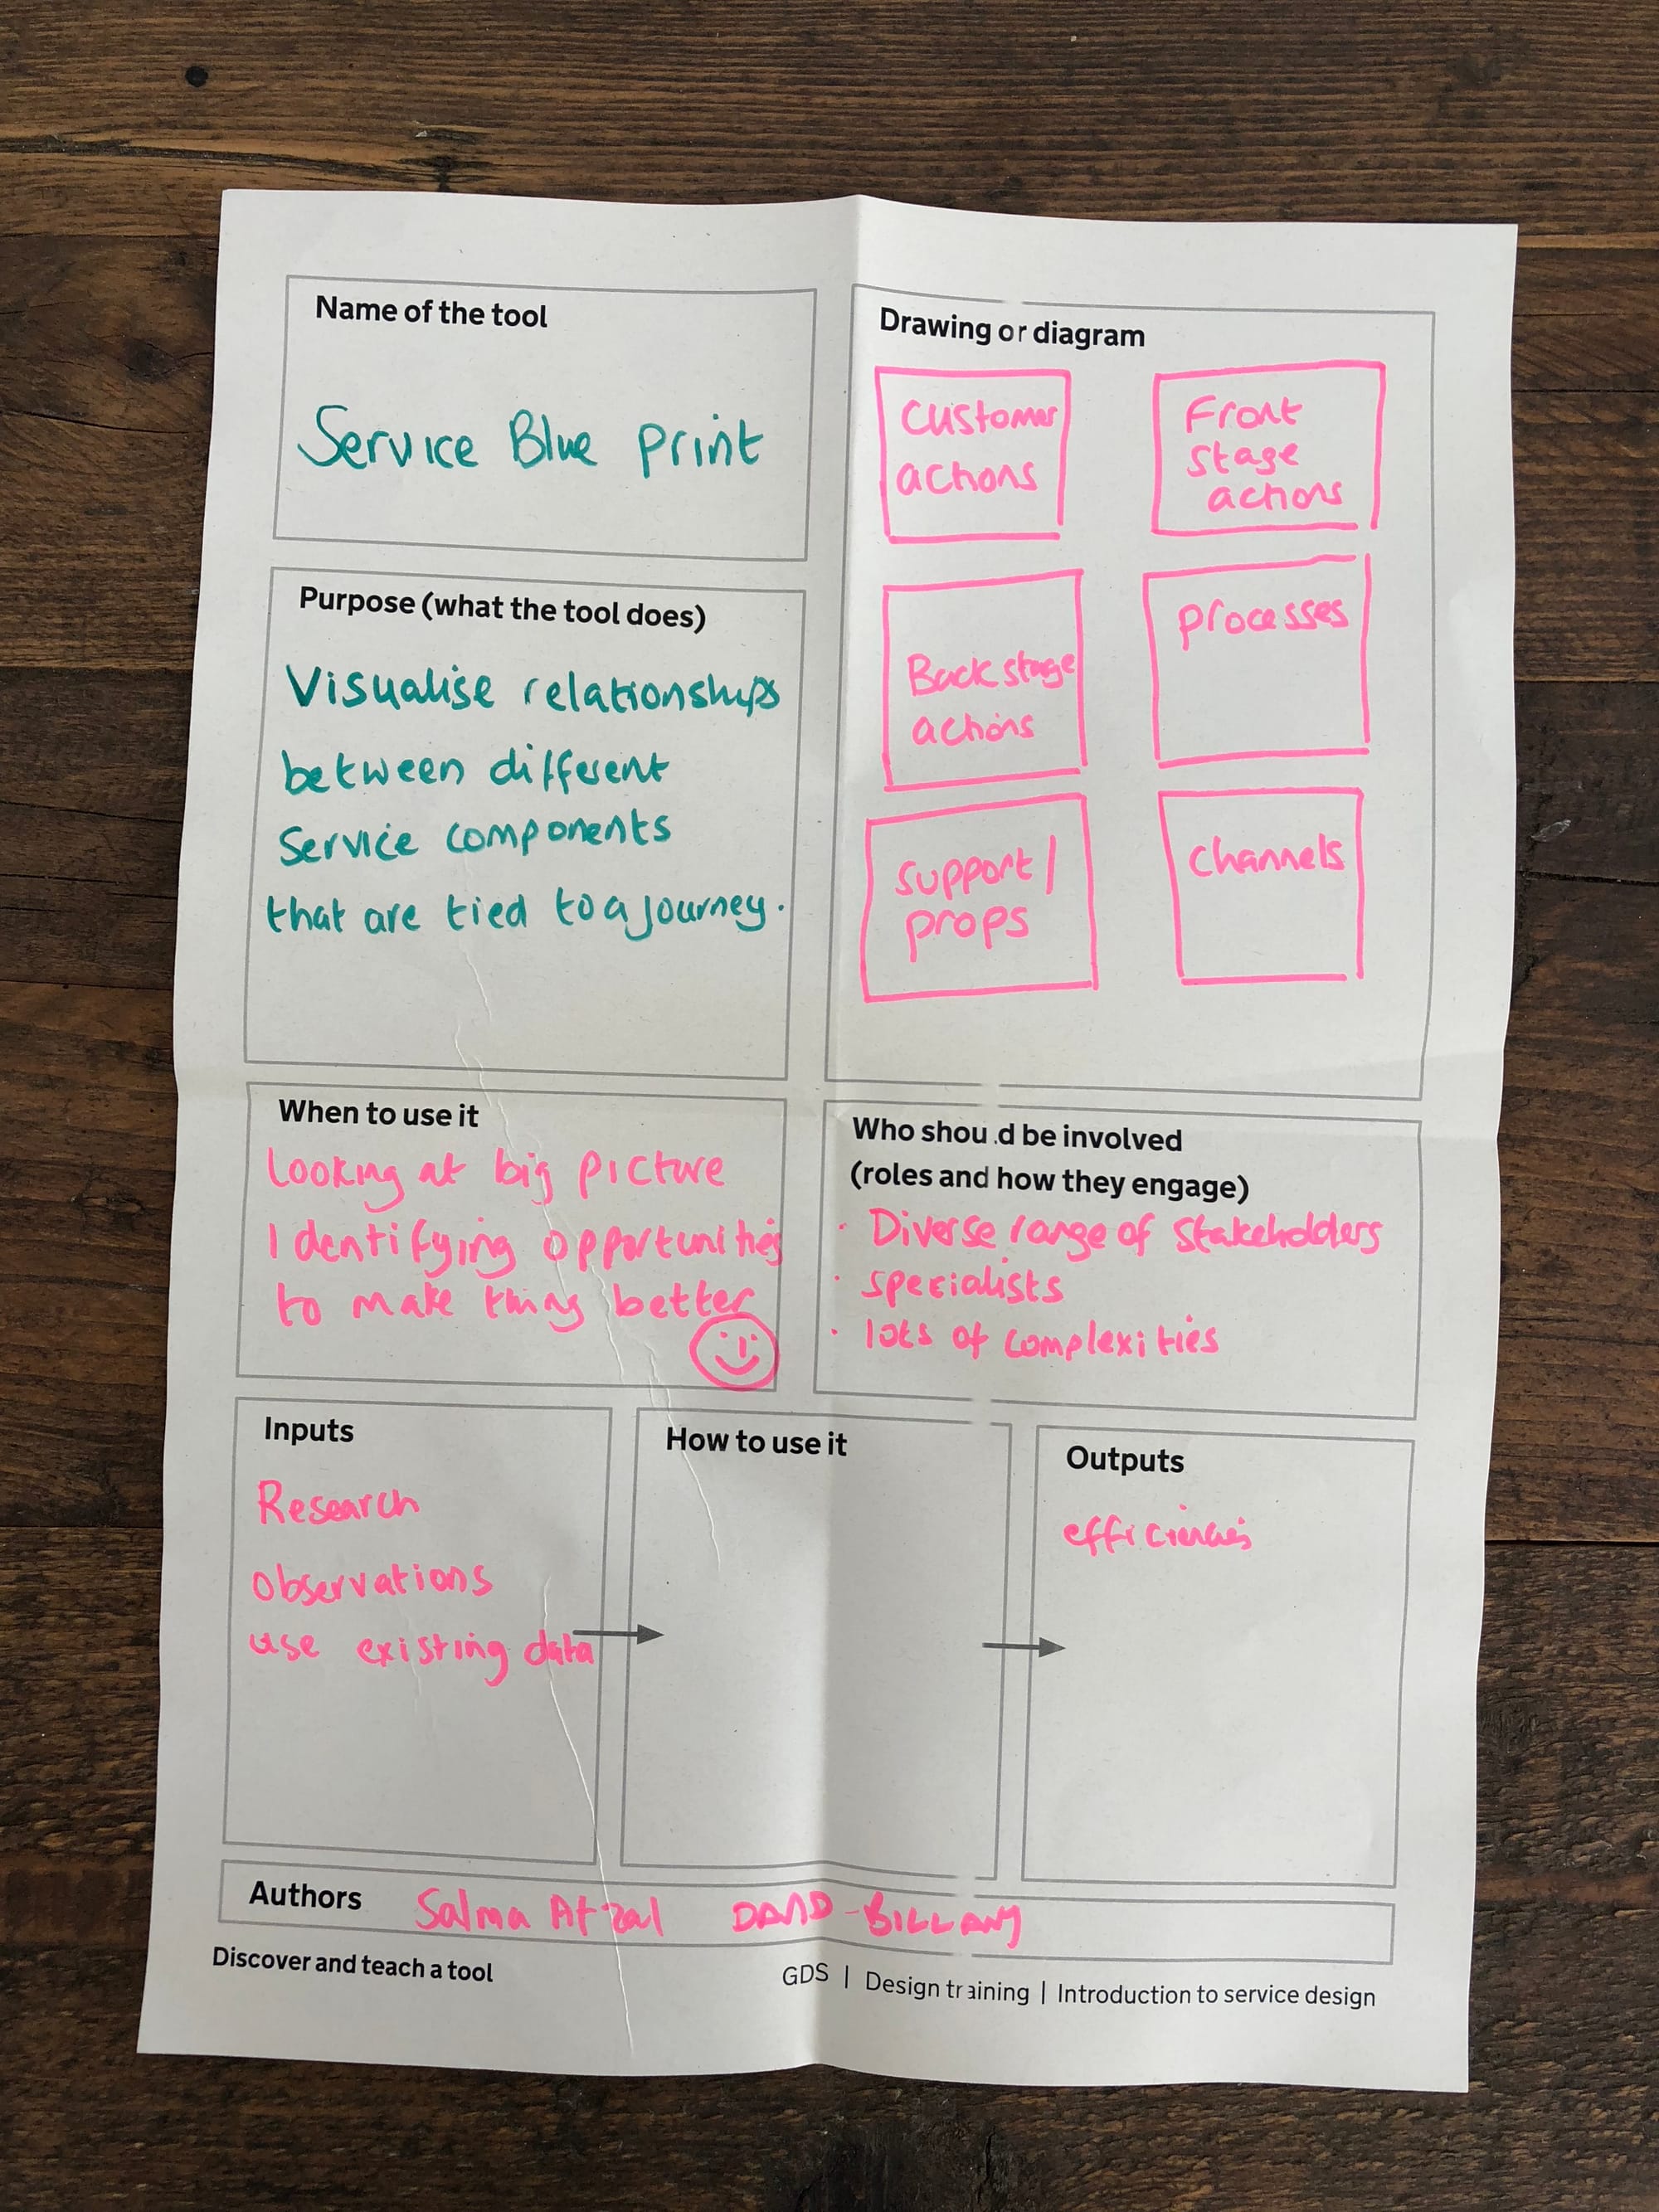 Name of the tool
Service Blue print
Purpose (what the tool does)
Visualise relationships
between different
service components
that are tied to a journey.
Drawing or diagram
Customer
actions
Front
stage
actions
Back stage
actions
processes
support/
props
channels
When to use it
Looking at big picture
Identifying opportunities
to make things better
Who should be involved
(roles and how they engage)
· Diverse range of stakeholders
· specialists
· lots of complexities
Inputs
Research
observations
use existing data
How to use it
Outputs
efficiencies
Authors Salma Afzal
Discover and teach a tool
GDS | Design training | Introduction to service design